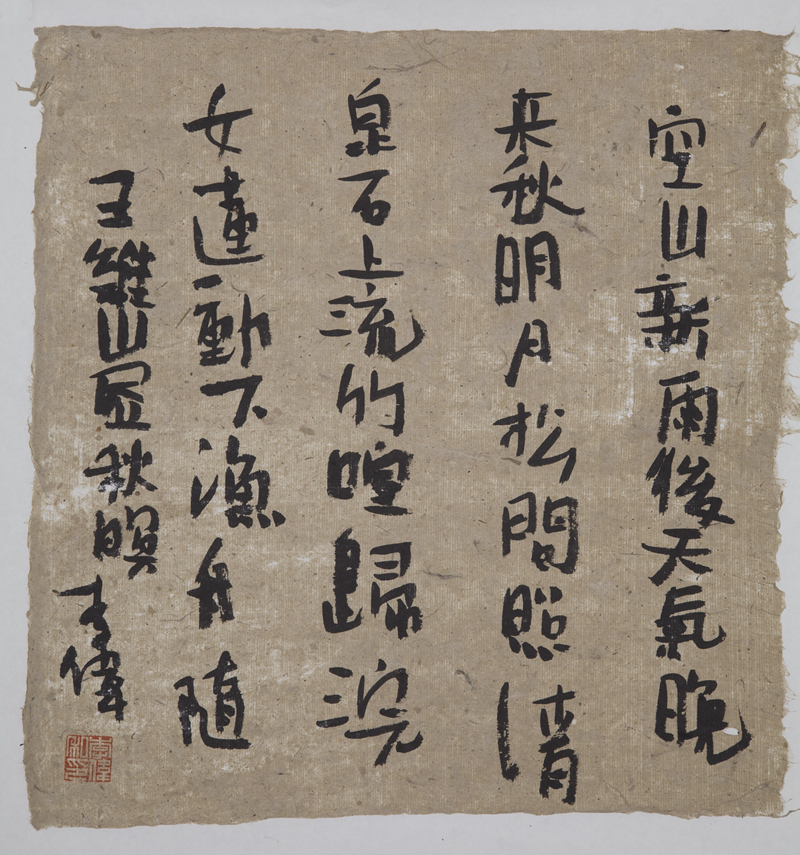 空山新雨後天氣晚
来秋明月松間照清
泉石上流竹喧歸浣
女蓮動下漁舟随
王維山居秋暝 李偉